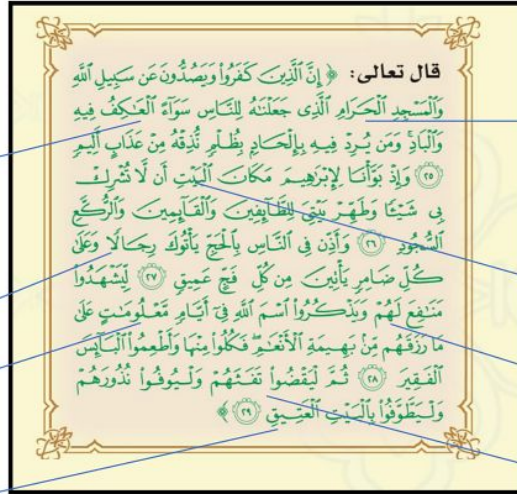 قال تعالى: ﴿ إِنَّ ٱلَّذِينَ كَفَرُواْ وَيَصُدُّونَ عَن سَبِيلِ ٱللَّهِ
وَٱلْمَسْجِدِ ٱلْحَرَامِ ٱلَّذِى جَعَلْنَٰهُ لِلنَّاسِ سَوَآءً ٱلْعَٰكِفُ فِيهِ
وَٱلْبَادِ وَمَن يُرِدْ فِيهِ بِإِلْحَادٍۭ بِظُلْمٍ نُّذِقْهُ مِنْ عَذَابٍ أَلِيمٍ
٢٥ وَإِذْ بَوَّأْنَا لِإِبْرَٰهِيمَ مَكَانَ ٱلْبَيْتِ أَن لَّا تُشْرِكْ
بِى شَيْـًٔا وَطَهِّرْ بَيْتِىَ لِلطَّآئِفِينَ وَٱلْقَآئِمِينَ وَٱلرُّكَّعِ
ٱلسُّجُودِ ٢٦ وَأَذِّن فِى ٱلنَّاسِ بِٱلْحَجِّ يَأْتُوكَ رِجَالًا وَعَلَىٰ
كُلِّ ضَامِرٍ يَأْتِينَ مِن كُلِّ فَجٍّ عَمِيقٍ ٢٧ لِّيَشْهَدُواْ
مَنَٰفِعَ لَهُمْ وَيَذْكُرُواْ ٱسْمَ ٱللَّهِ فِىٓ أَيَّامٍ مَّعْلُومَٰتٍ عَلَىٰ
مَا رَزَقَهُم مِّنۢ بَهِيمَةِ ٱلْأَنْعَٰمِ فَكُلُواْ مِنْهَا وَأَطْعِمُواْ ٱلْبَآئِسَ
ٱلْفَقِيرَ ٢٨ ثُمَّ لْيَقْضُواْ تَفَثَهُمْ وَلْيُوفُواْ نُذُورَهُمْ
وَلْيَطَّوَّفُواْ بِٱلْبَيْتِ ٱلْعَتِيقِ ٢٩ ﴾